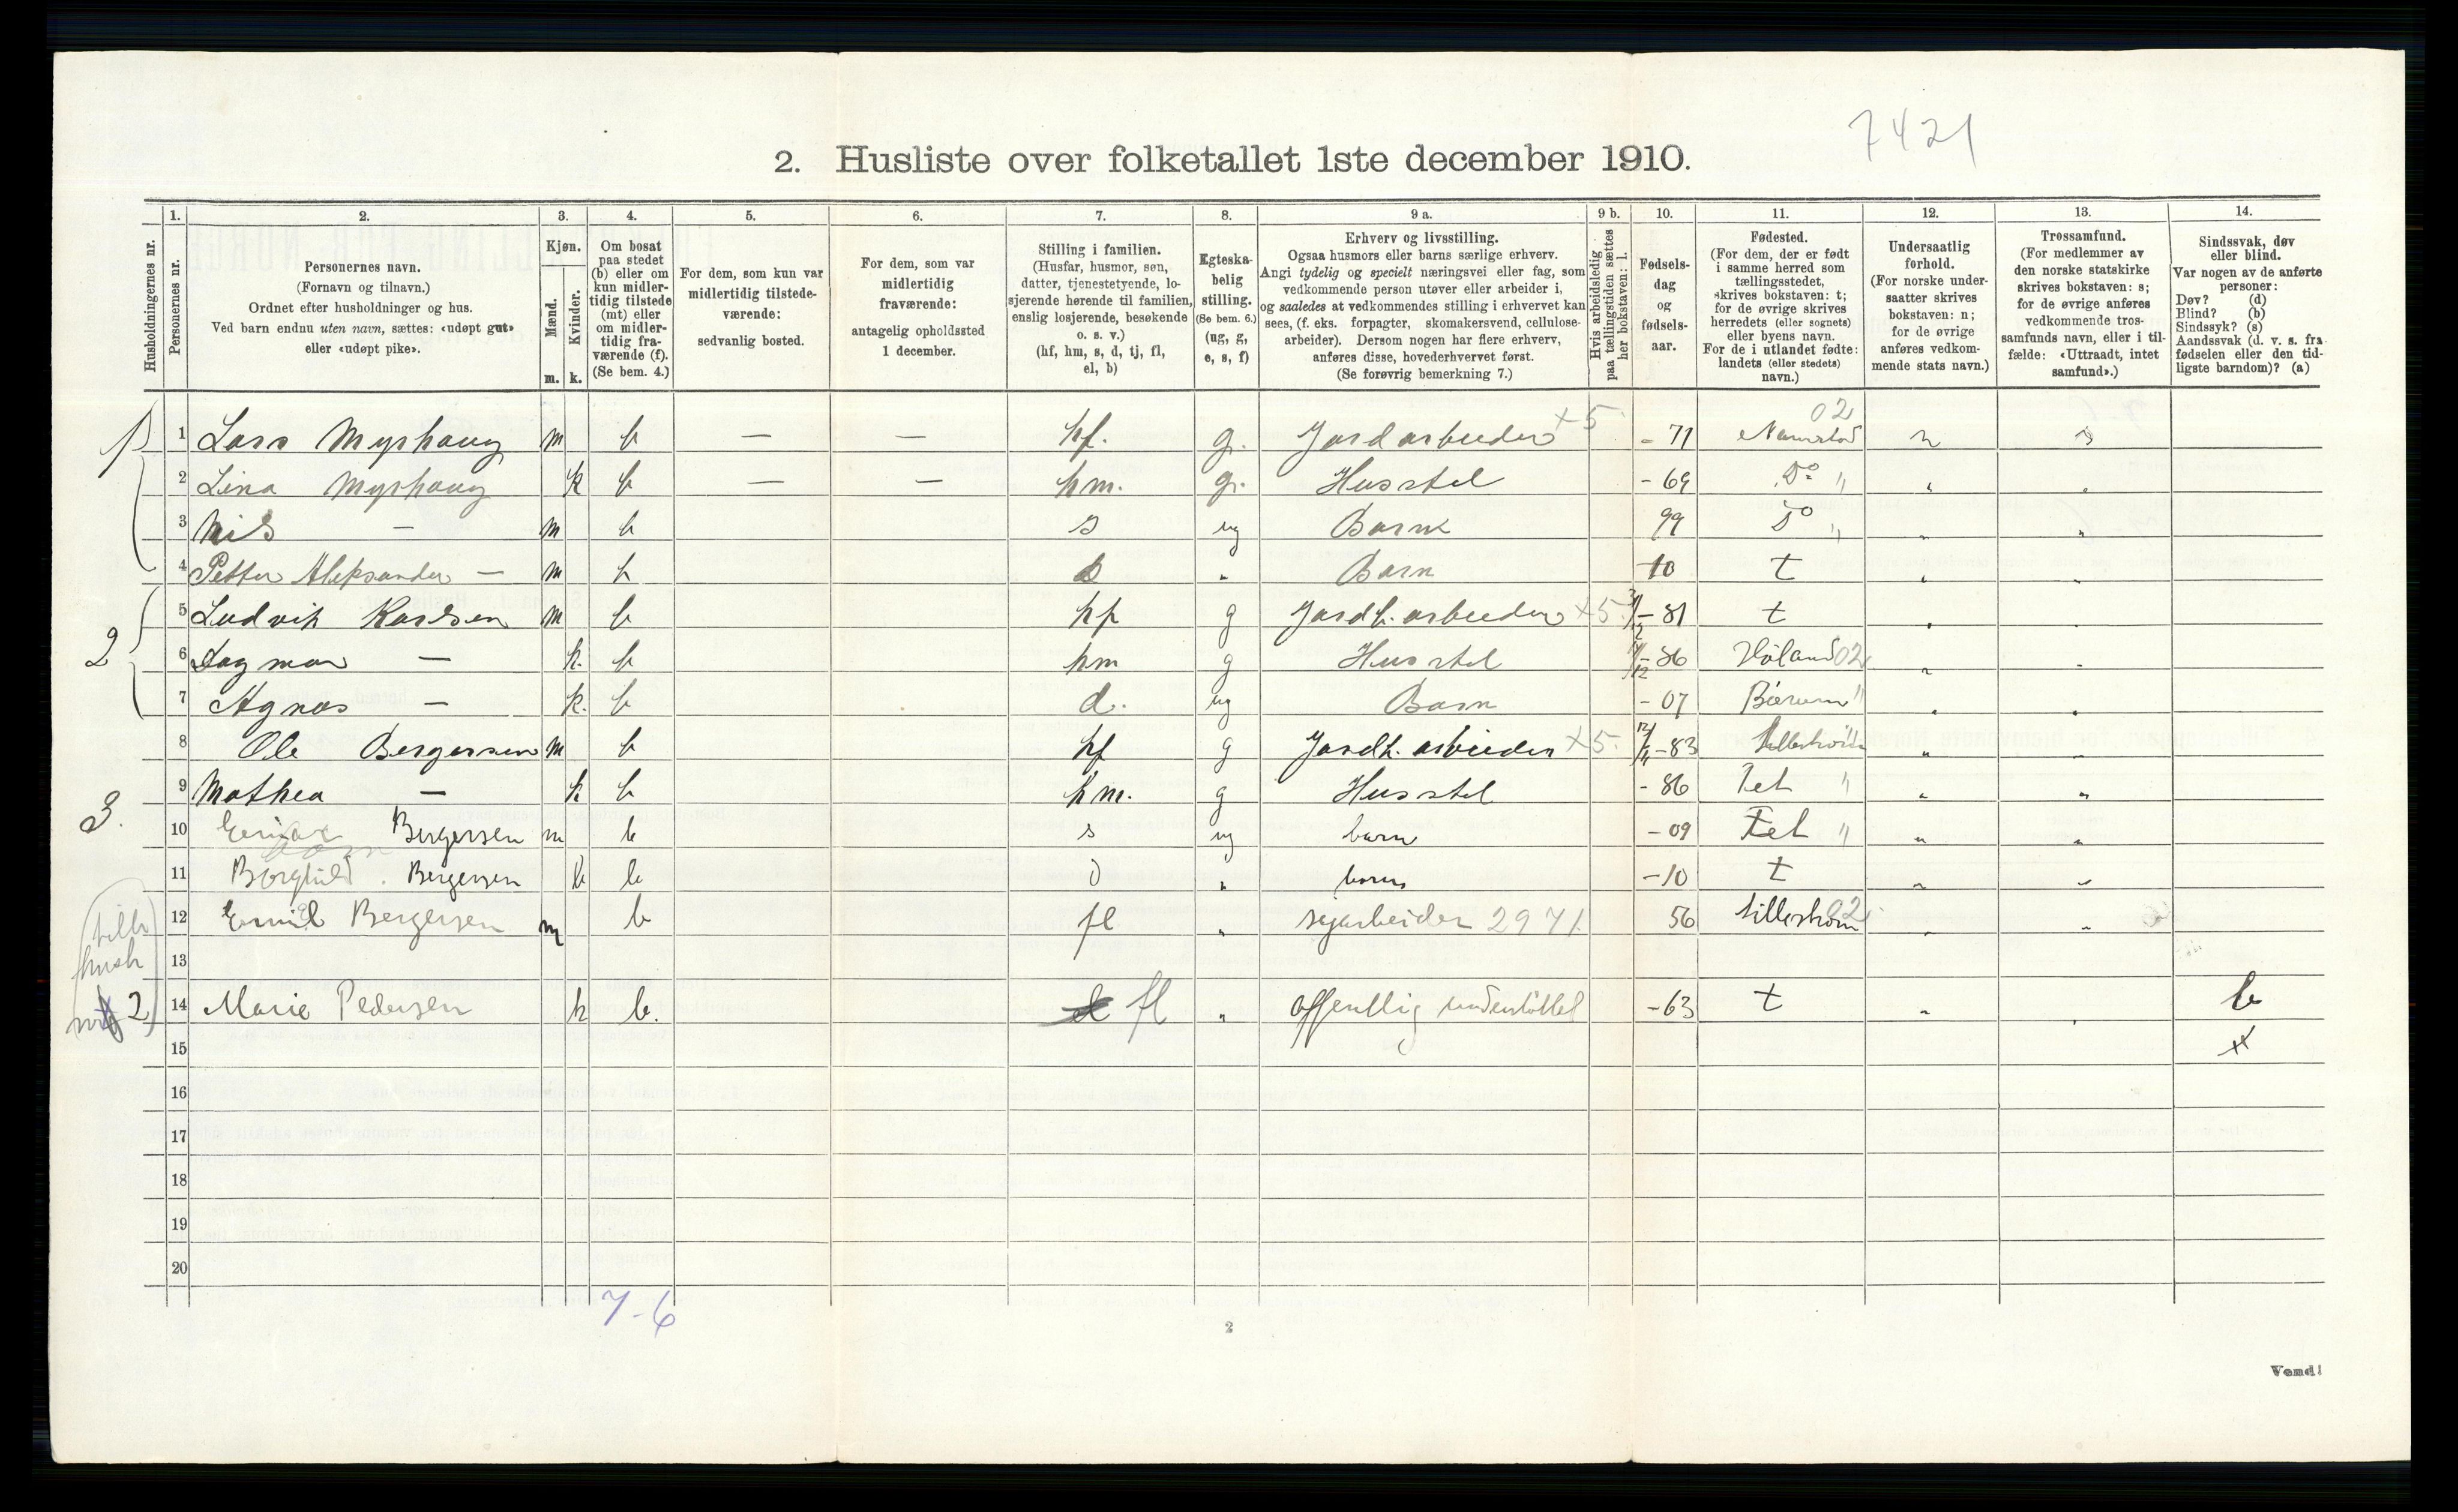 7421
2. Husliste over folketallet 1ste december 1910.
Husholdningernes nr.
1. Personernes nr.
2. Personernes navn. (Fornavn og tilnavn.) Ordnet efter husholdninger og hus. Ved barn endnu uten navn, sættes: «udøpt gut» eller «udøpt pike».
3. Kjøn. Mænd. m. Kvinder. k.
4. Om bosat paa stedet (b) eller om kun midlertidig tilstede (mt) eller om midlertidig fraværende (f). (Se bem. 4.)
5. For dem, som kun var midlertidig tilstedeværende: sedvanlig bosted.
6. For dem, som var midlertidig fraværende: antagelig opholdssted 1 december.
7. Stilling i familien. (Husfar, husmor, søn, datter, tjenestetyende, losjerende hørende til familien, enslig losjerende, besøkende o. s. v.) (hf, hm, s, d, tj, fl, el, b)
8. Egteskabelig stilling. (Se bem. 6.) (ug, g, e, s, f)
9 a. Erhverv og livsstilling. Ogsaa husmors eller barns særlige erhverv. Angi tydelig og specielt næringsvei eller fag, som vedkommende person utøver eller arbeider i, og saaledes at vedkommendes stilling i erhvervet kan sees, (f. eks. forpagter, skomakersvend, cellulosearbeider). Dersom nogen har flere erhverv, anføres disse, hovederhvervet først. (Se forøvrig bemerkning 7.)
9 b. Hvis arbeidsledig paa tællingstiden sættes her bokstaven: l.
10. Fødselsdag og fødselsaar.
11. Fødested. (For dem, der er født i samme herred som tællingsstedet, skrives bokstaven: t; for de øvrige skrives herredets (eller sognets) eller byens navn. For de i utlandet fødte: landets (eller stedets) navn.)
12. Undersaatlig forhold. (For norske undersaatter skrives bokstaven: n; for de øvrige anføres vedkommende stats navn.)
13. Trossamfund. (For medlemmer av den norske statskirke skrives bokstaven: s; for de øvrige anføres vedkommende trossamfunds navn, eller i tilfælde: «Uttraadt, intet samfund».)
14. Sindssvak, døv eller blind. Var nogen av de anførte personer: Døv? (d) Blind? (b) Sindssyk? (s) Aandssvak (d. v. s. fra fødselen eller den tidligste barndom)? (a)
1 1 Lars Myrhaug m b — — hf. g. Jordarbeider x5 - 71 02 n s
2 Lina Myrhaug k b — — hm. g. Husstel - 69 Do " " "
3 Nils — m b s ug Barn 99 Do " " "
4 Petter Aleksander — m b s " Barn 10 t " "
2 5 Ludvik Karlsen m b hf g Jordb. arbeider x5 - 81 t " "
6 Dagmar — k. b hm g Husstel - 86 Høland 02 " "
7 Agnes — k. b d. ug Barn - 07 Bærum " " "
3. 8 Ole Bergersen m b hf g Jordb. arbeider x5 12/11 - 83 Lillestrøm " "
9 Mathea — k b hm. g Husstel - 86 Fet " " "
10 Bergersen m b s ug barn - 09 Fet " " "
11 Borghild Bergersen k b d " barn - 10 t " "
12 Emil Bergersen m b fl " sagarbeider 2971 56 Lillestrøm 02 " "
13
2 14 Marie Pedersen k b. fl " offentlig understøttet - 63 t " " b
15 x
16
17
18
19
20
7-6
2
Vend!